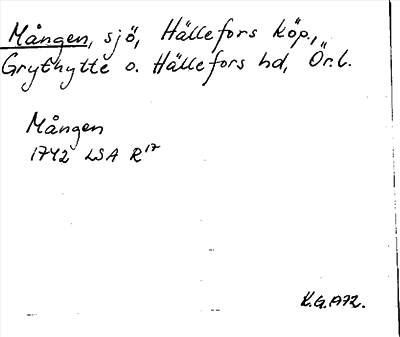 Mången, sjö, Hällefors köp.,
Grythytte o. Hällefors hd, Ör.l.
Mången
1742 LSA R¹⁷
K.G.1972.